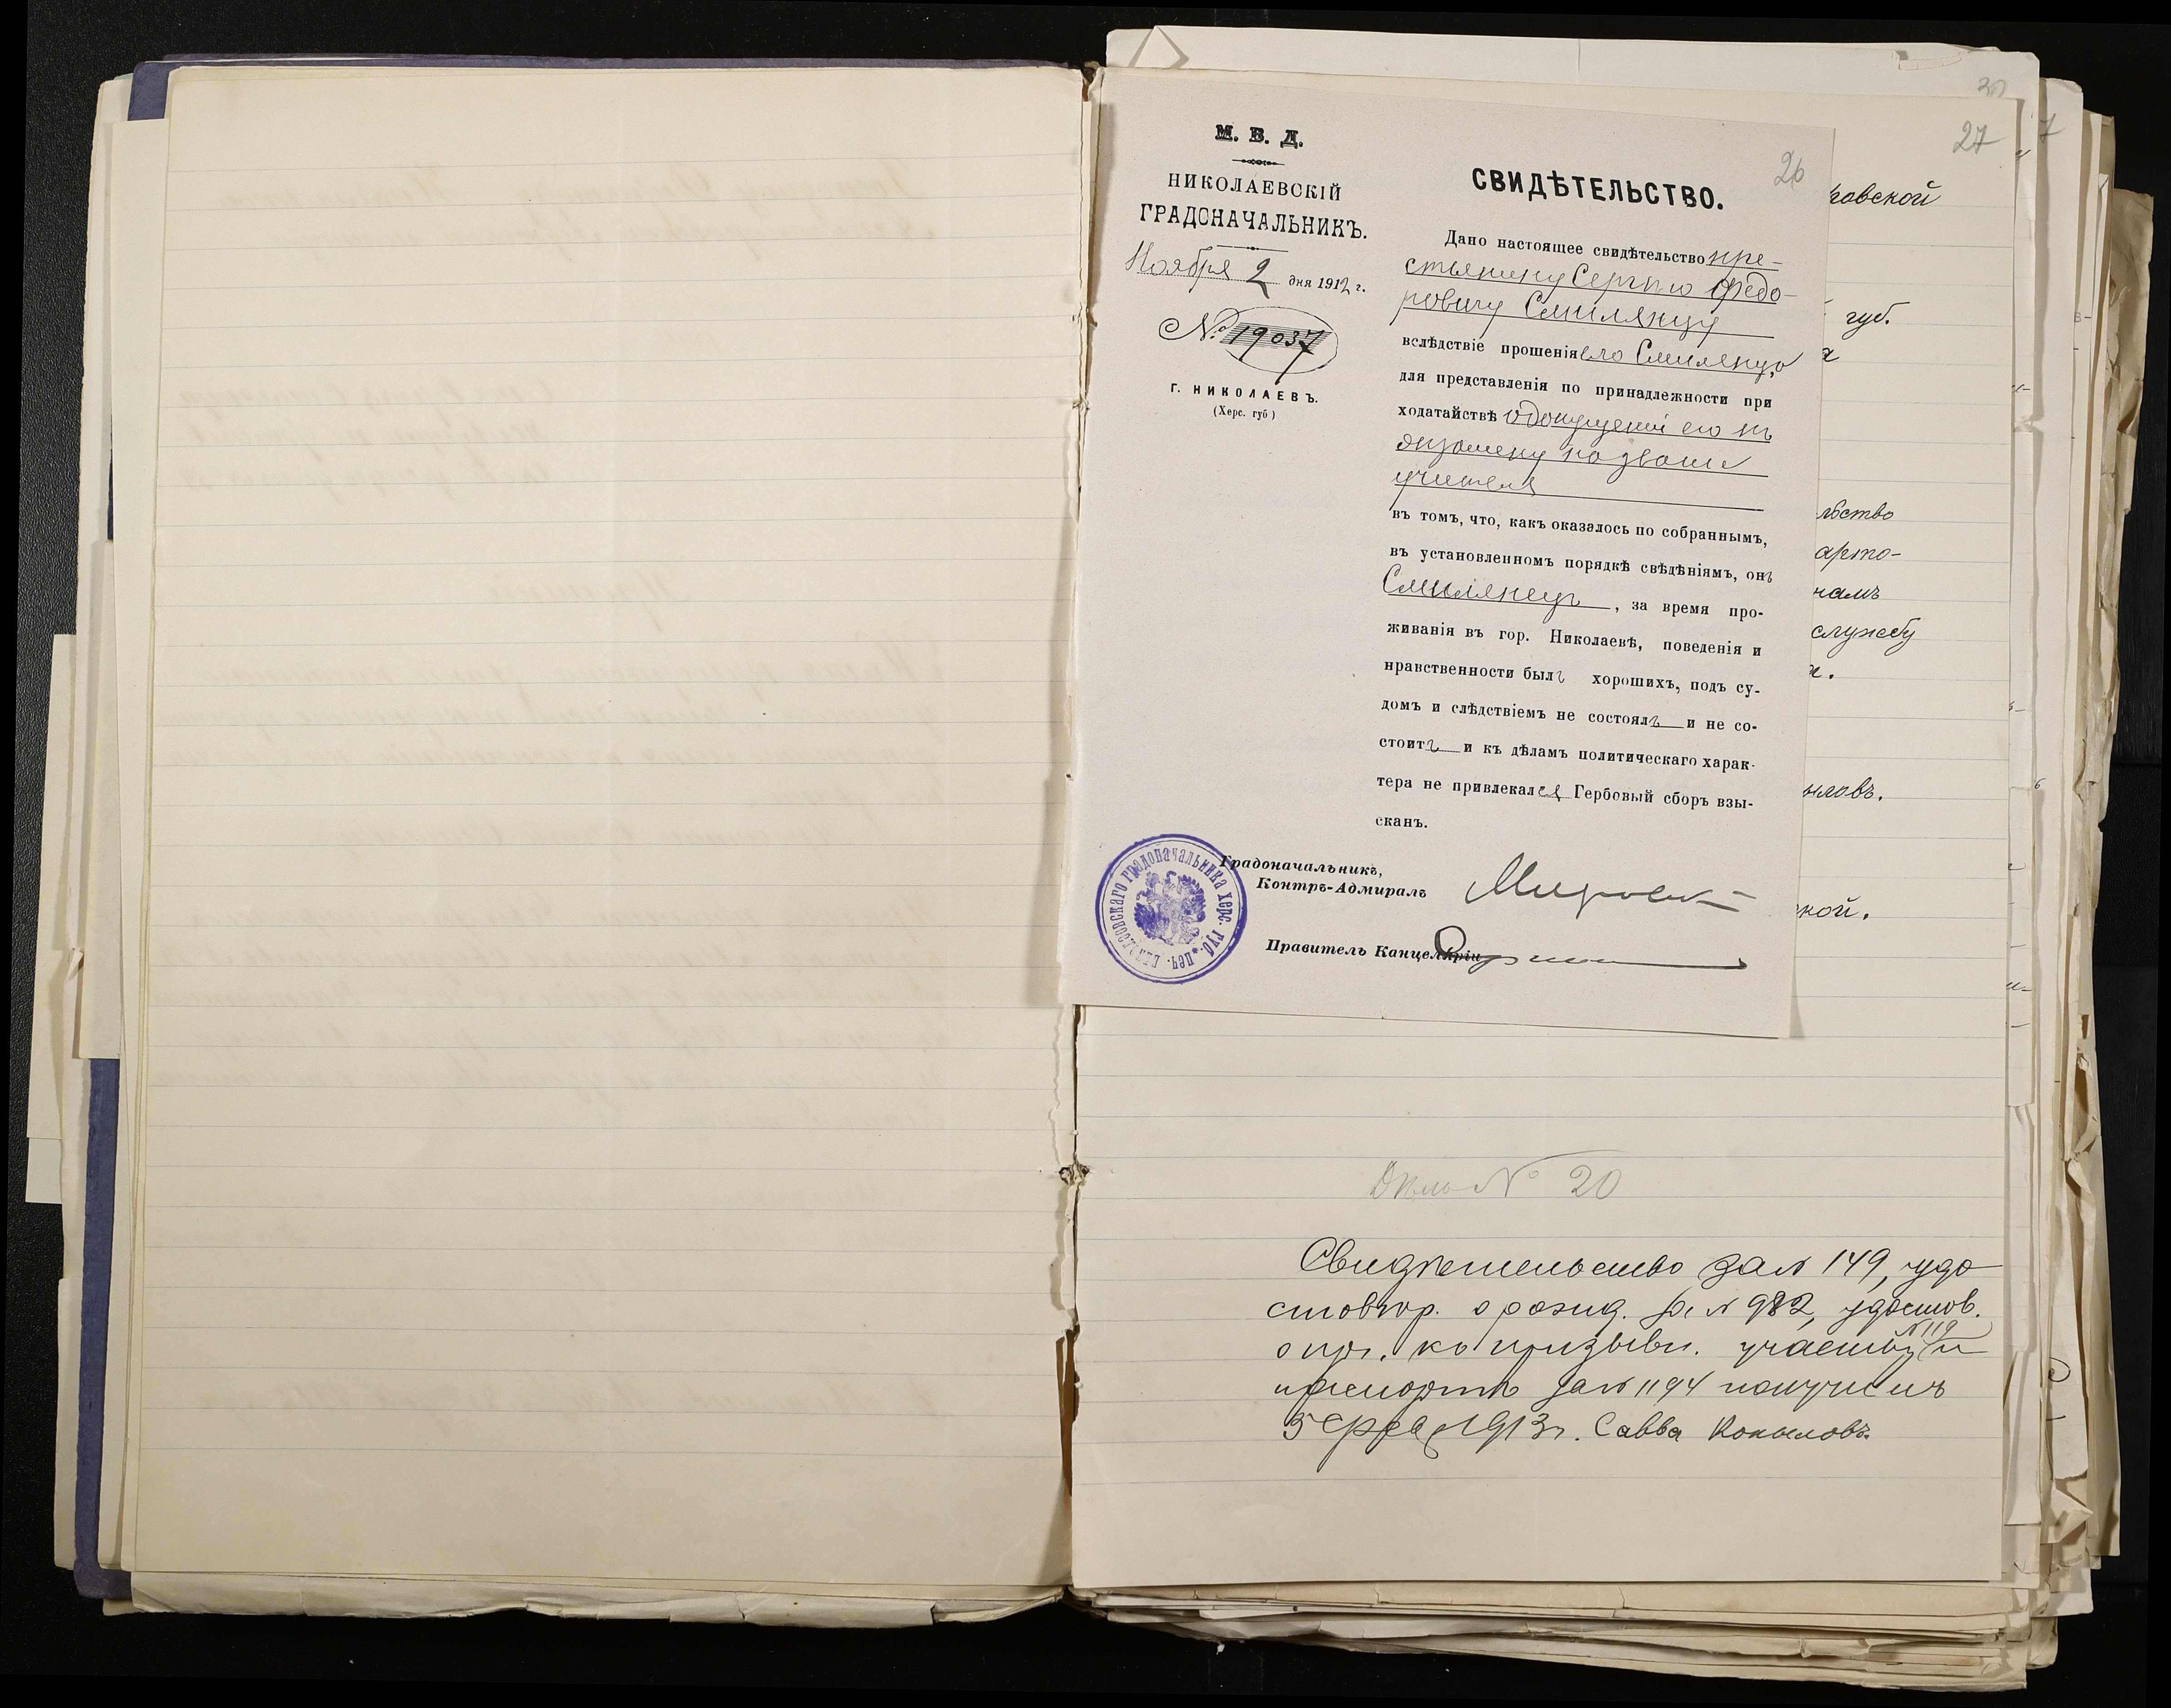 М. В. Д.
НИКОЛАЕВСКІЙ
ГРАДОНАЧАЛЬНИКЪ.
Ноября 2 дня 1912 г.
№ 19037
Г. НИКОЛАЕВЪ.
(Херс. губ)
26
СВИДѢТЕЛЬСТВО.
Дано настоящее свидѣтельство кре-
стьянину Сергѣю Ѳедо-
ровичу Смилянцу
вслѣдствіе прошенія его Смилянца,
для представленія по принадлежности при
ходатайствѣ о допущеніи его къ
экзамену на званіе
учителя
въ томъ, что, какъ оказалось по собраннымъ,
въ установленномъ порядкѣ свѣдѣніямъ, онъ
Смилянецъ, за время про-
живанія въ гор. Николаевѣ, поведенія и
нравственности былъ хорошихъ, подъ су-
домъ и слѣдствіемъ не состоялъ и не со-
стоитъ и къ дѣламъ политическаго харак-
тера не привлекался Гербовый сборъ взы-
сканъ.
Градоначальникъ,
Контръ-Адмиралъ
Правитель Канцеляріи
27
ровской
губ.
а
льство
арто-
намъ
службу
ыловъ.
ской.
Дѣло № 20
Свидѣтельство за № 149, удо
стовѣр. о рожд. за № 982, удостов.
о пр. къ призывн. участку № 119 и
паспортъ за № 1194 получилъ
5 февр 1913 г. Савва Копыловъ.